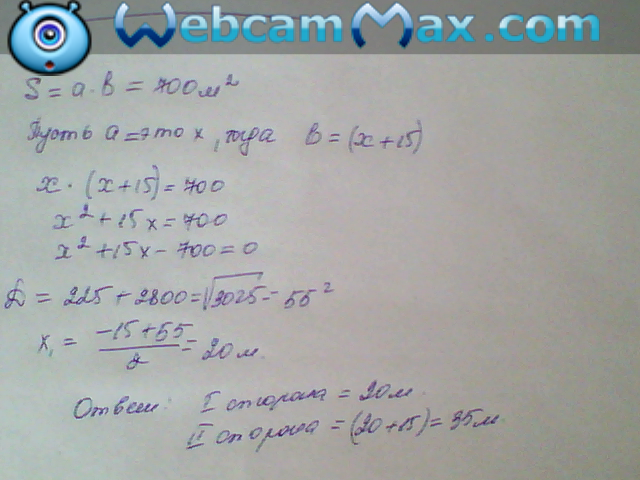 WebcamMax.com
S = a · b = 700 м²
Пусть a = это x, тогда b = (x+15)
x · (x+15) = 700
x² + 15x = 700
x² + 15x - 700 = 0
D = 225 + 2800 = √3025 = 55²
x₁ = (-15+55)/2 = 20 м.
Ответ: I сторона = 20 м.
II сторона = (20+15) = 35 м.